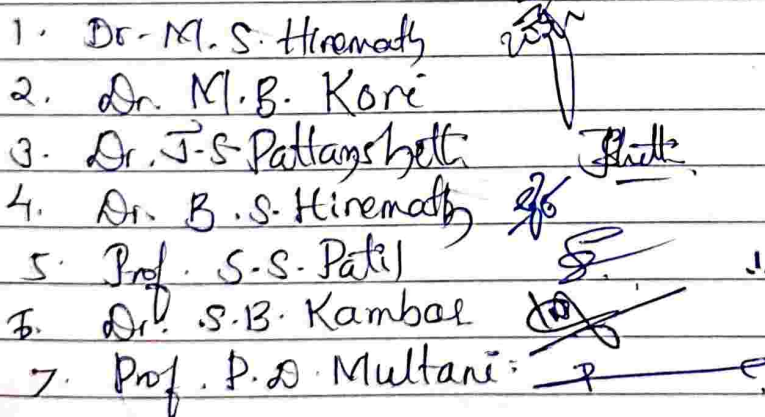 1. Dr. M. S. Hiremath
2. Dr. M. B. Kori
3. Dr. J. S. Pattanshetti Jshetti
4. Dr. B. S. Hiremath
5. Prof. S. S. Patil
6. Dr. S. B. Kambar
7. Prof. P. D. Multani: